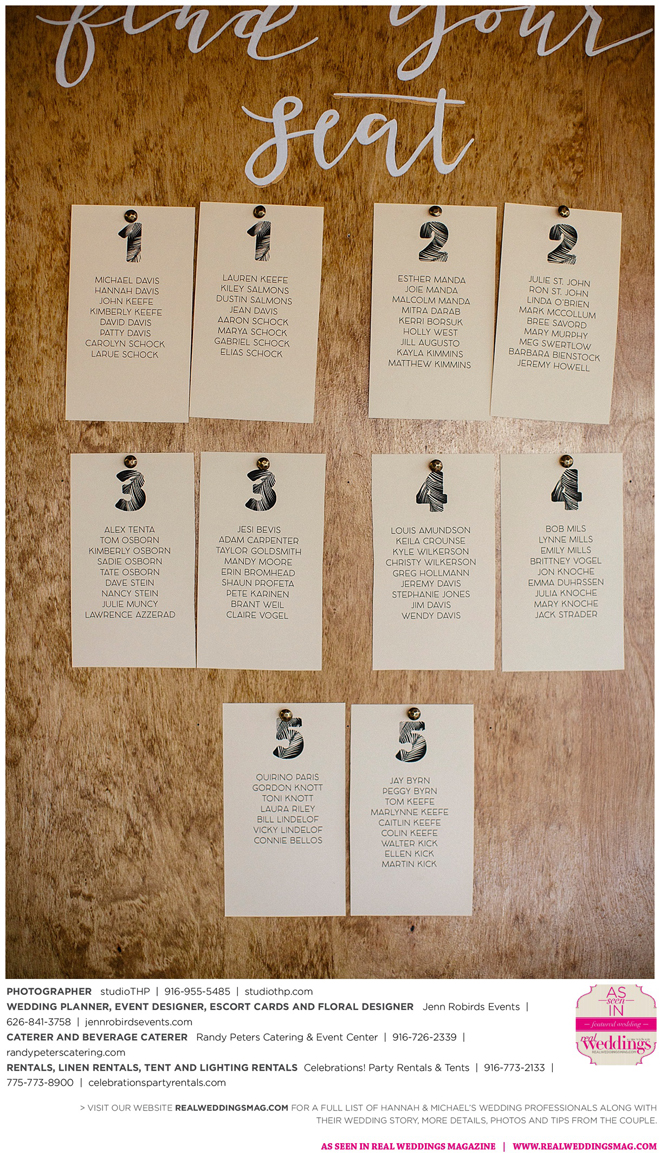 find your
seat
1
MICHAEL DAVIS
HANNAH DAVIS
JOHN KEEFE
KIMBERLY KEEFE
DAVID DAVIS
PATTY DAVIS
CAROLYN SCHOCK
LARUE SCHOCK
1
LAUREN KEEFE
KILEY SALMONS
DUSTIN SALMONS
JEAN DAVIS
AARON SCHOCK
MARYA SCHOCK
GABRIEL SCHOCK
ELIAS SCHOCK
2
ESTHER MANDA
JOIE MANDA
MALCOLM MANDA
MITRA DARAB
KERRI BORSUK
HOLLY WEST
JILL AUGUSTO
KAYLA KIMMINS
MATTHEW KIMMINS
2
JULIE ST. JOHN
RON ST. JOHN
LINDA O'BRIEN
MARK MCCOLLUM
BREE SAVORD
MARY MURPHY
MEG SWERTLOW
BARBARA BIENSTOCK
JEREMY HOWELL
3
ALEX TENTA
TOM OSBORN
KIMBERLY OSBORN
SADIE OSBORN
TATE OSBORN
DAVE STEIN
NANCY STEIN
JULIE MUNCY
LAWRENCE AZZERAD
3
JESI BEVIS
ADAM CARPENTER
TAYLOR GOLDSMITH
MANDY MOORE
ERIN BROMHEAD
SHAUN PROFETA
PETE KARINEN
BRANT WEIL
CLAIRE VOGEL
4
LOUIS AMUNDSON
KEILA CROUNSE
KYLE WILKERSON
CHRISTY WILKERSON
GREG HOLLMANN
JEREMY DAVIS
STEPHANIE JONES
JIM DAVIS
WENDY DAVIS
4
BOB MILS
LYNNE MILLS
EMILY MILLS
BRITTNEY VOGEL
JON KNOCHE
EMMA DUHRSSEN
JULIA KNOCHE
MARY KNOCHE
JACK STRADER
5
QUIRINO PARIS
GORDON KNOTT
TONI KNOTT
LAURA RILEY
BILL LINDELOF
VICKY LINDELOF
CONNIE BELLOS
5
JAY BYRN
PEGGY BYRN
TOM KEEFE
MARLYNNE KEEFE
CAITLIN KEEFE
COLIN KEEFE
WALTER KICK
ELLEN KICK
MARTIN KICK
PHOTOGRAPHER studioTHP | 916-955-5485 | studiothp.com
WEDDING PLANNER, EVENT DESIGNER, ESCORT CARDS AND FLORAL DESIGNER Jenn Robirds Events |
626-841-3758 | jennrobirdsevents.com
CATERER AND BEVERAGE CATERER Randy Peters Catering & Event Center | 916-726-2339 |
randypeterscatering.com
RENTALS, LINEN RENTALS, TENT AND LIGHTING RENTALS Celebrations! Party Rentals & Tents | 916-773-2133 |
775-773-8900 | celebrationspartyrentals.com
AS
seen
IN
featured wedding
real
weddings
REALWEDDINGSMAG.COM
> VISIT OUR WEBSITE REALWEDDINGSMAG.COM FOR A FULL LIST OF HANNAH & MICHAEL'S WEDDING PROFESSIONALS ALONG WITH
THEIR WEDDING STORY, MORE DETAILS, PHOTOS AND TIPS FROM THE COUPLE.
AS SEEN IN REAL WEDDINGS MAGAZINE | WWW.REALWEDDINGSMAG.COM